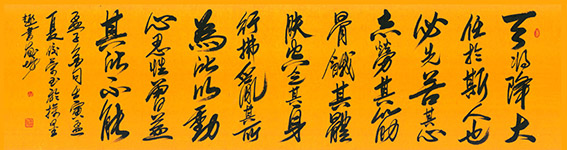 天将降大
任於斯人也
必先苦其心
志勞其筋
骨餓其體
肤空乏其身
行拂亂其所
為所以動
心忍性曾益
其所不能
孟子名句壬寅孟
夏